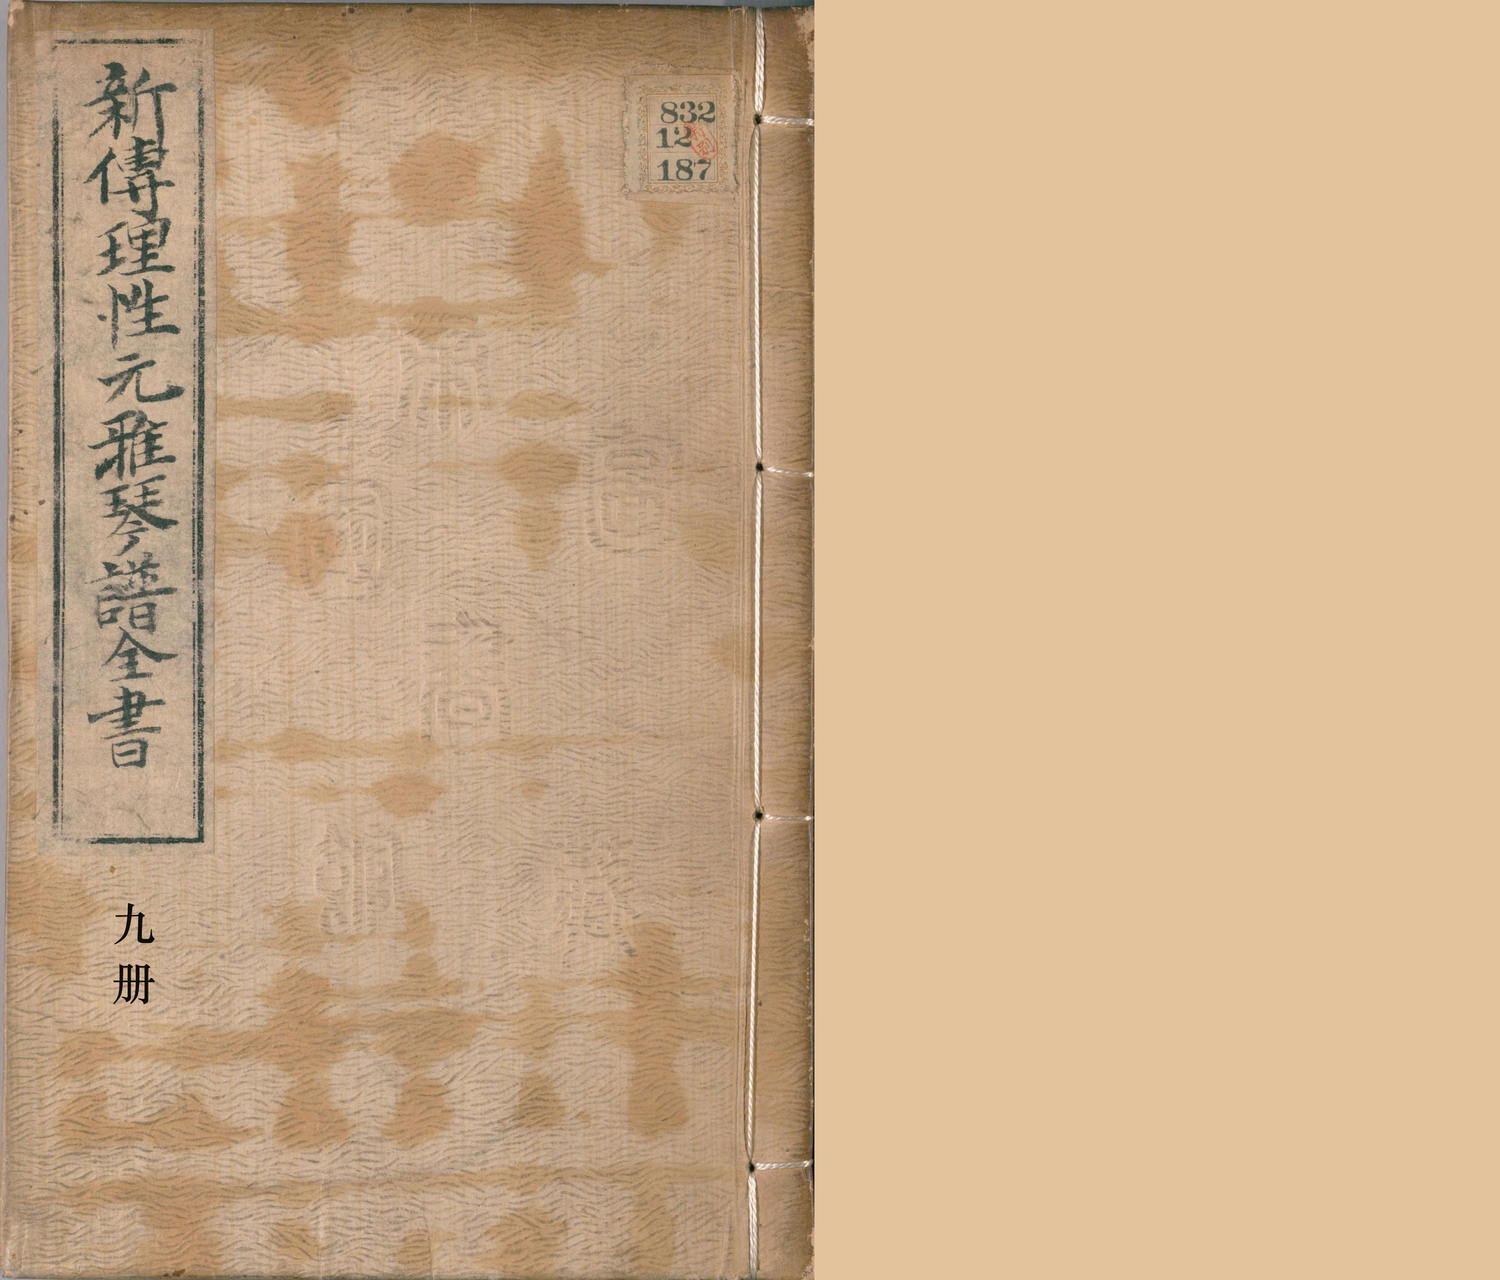 832
12
187
新傳理性元雅琴譜全書
九册